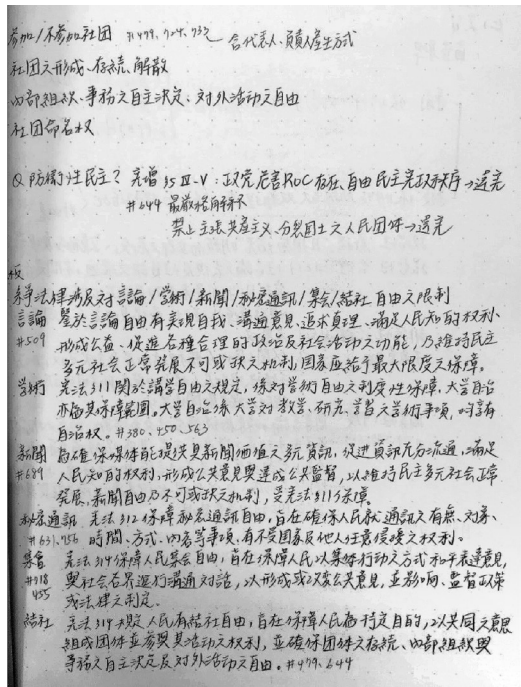 參加/不參加社團 #479、724、733 含代表人、負責人產生方式
社团之形成、存続、解散
內部組織、事務之自主決定、対外活動之自由
社団命名权
Q 防衛性民主? 憲增 §5 IV-V: 政党危害ROC存在、自由民主憲政秩序→違憲
#644 最嚴格解釋
禁止主張共產主义、分裂国土之人民団体→違憲
段
系爭法律涉及対言論/學術/新聞/秘密通訊/集会/結社自由之限制
言論 鑒於言論自由有表現自我、溝通意見、追求真理、滿足人民知的权利、
#509 形成公益、促進各種合理的政治及社会活动之功能,乃維持民主
多元社会正常發展不可或缺之机制,国家应給予最大限度之保障。
學術 憲法§11関於講學自由之規定,係対學術自由之制度性保障。大學自治
亦屬其保障範圍。大學自治係大學対教學、研究、學習之學術事項,均享有
自治权。#380、450、563
新聞 為確保媒体能提供具新聞価值之多元資訊,促進資訊充分流通,滿足
#689 人民知的权利,形成公共意見與達成公共監督,以維持民主多元社会正常
發展,新聞自由乃不可或缺之机制,受憲法§11保障。
秘密通訊 憲法§12保障秘密通訊自由,旨在確保人民就通訊之有無、対象、
#631、756 時間、方式、內容等事項,有不受国家及他人任意侵擾之权利。
集會 憲法§14保障人民集会自由,旨在保障人民以集体行动之方式和平表達意見,
#718 與社会各界進行溝通対話,以形成或改変公共意見,並影响、監督政策
445 或法律之制定。
結社 憲法§14規定人民有結社自由,旨在保障人民為特定目的,以共同之意思
組成団体並參與其活动之权利,並確保団体之存続、內部組織與
事務之自主決定及対外活动之自由。#479、644